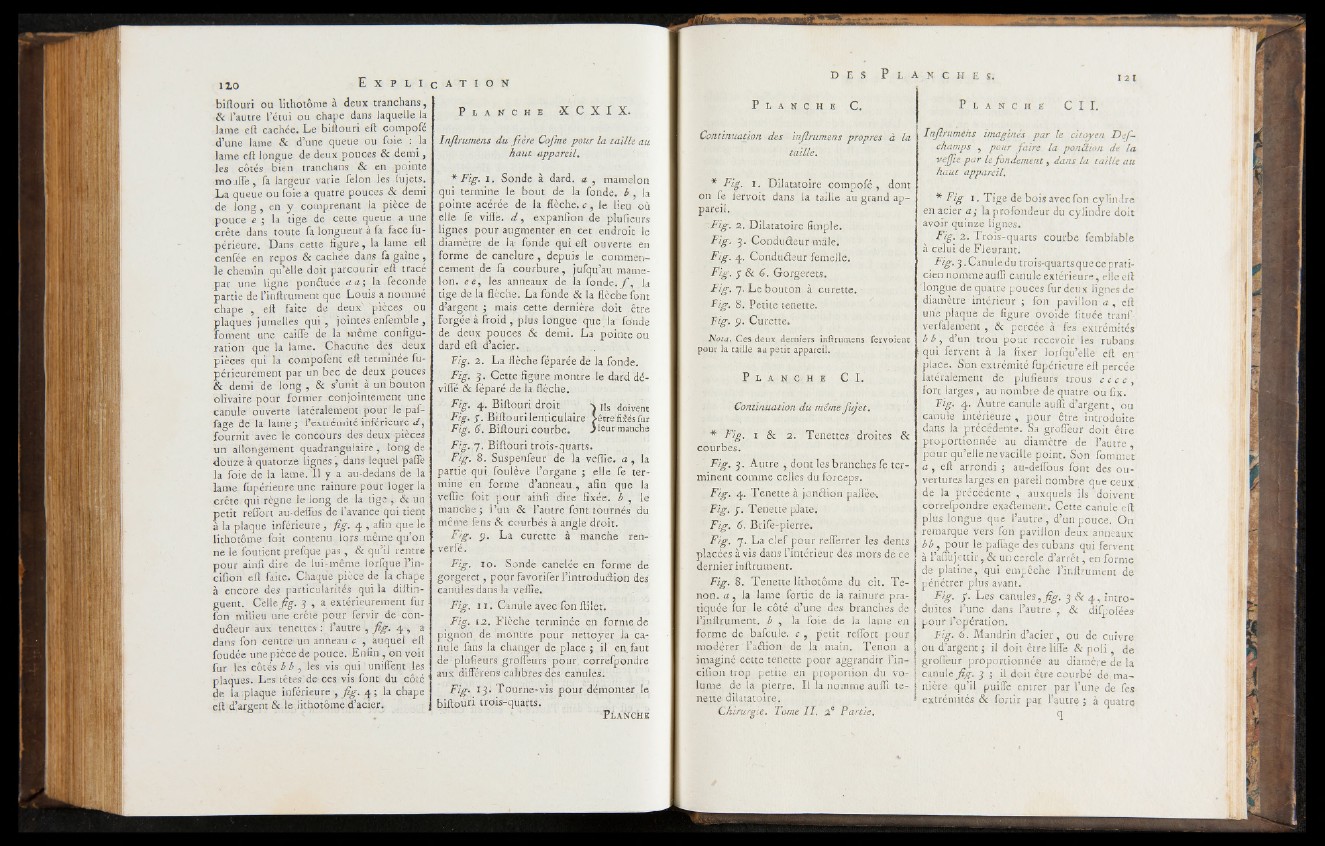 120 EXPLICATION
biſtouri ou lithotôme à deux tranchans,
& l'autre l'étui ou chape dans laquelle la
lame eſt cachée. Le biſtouri eſt compoſé
d'une lame & d'une queue ou ſoie : la
lame eſt longue de deux pouces & demi,
les côtés bien tranchans & en pointe
mouſſe, ſa largeur varie ſelon les ſujets.
La queue ou ſoie a quatre pouces & demi
de long, en y comprenant la pièce de
pouce e ; la tige de cette queue a une
crête dans toute ſa longueur à ſa face ſu-
périeure. Dans cette figure, la lame eſt
cenſée en repos & cachée dans ſa gaîne,
le chemin qu'elle doit parcourir eſt tracé
par une ligne ponctuée a a ; la ſeconde
partie de l'inſtrument que Louis a nommé
chape , eſt faite de deux pièces ou
plaques jumelles qui , jointes enſemble,
forment une caiſſe de la même configu-
ration que la lame. Chacune des deux
pièces qui la compoſent eſt terminée ſu-
périeurement par un bec de deux pouces
& demi de long , & s'unit à un bouton
olivaire pour former conjointement une
canule ouverte latéralement pour le paſ-
ſage de la lame ; l'extrémité inférieure d,
fournit avec le concours des deux pièces
un allongement quadrangulaire, long de
douze à quatorze lignes, dans lequel paſſe
la ſoie de la lame. Il y a au-dedans de la
lame ſupérieure une rainure pour loger la
crête qui règne le long de la tige, & un
petit reſſort au-deſſus de l'avance qui tient
à la plaque inférieure, fig. 4, afin que le
lithotôme ſoit contenu lors même qu'on
ne le ſoutient preſque pas , & qu'il rentre
pour ainſi dire de lui-même lorſque l'in-
ciſion eſt faite. Chaque pièce de la chape
à encore des particularités qui la diſtin-
guent. Celle fig. 3 , a extérieurement ſur
ſon milieu une crête pour ſervir de con-
ducteur aux tenettes : l'autre , fig. 4, a
dans ſon centre un anneau c , auquel eſt
ſoudée une pièce de pouce. Enfin, on voit
ſur les côtés b b , les vis qui uniſſent les
plaques. Les têtes de ces vis ſont du côté
de la plaque inférieure , fig. 4 ; la chape
eſt d'argent & le lithotôme d'acier.
PLANCHE XCXIX.
Inſtrumens du frère Coſme pour la taille au
haut appareil.
* Fig. 1. Sonde à dard. a , mamelon
qui termine le bout de la ſonde. b , la
pointe acérée de la flèche. c, le lieu où
elle ſe viſſe. d, expanſion de pluſieurs
lignes pour augmenter en cet endroit le
diamètre de la ſonde qui eſt ouverte en
forme de canelure, depuis le commen-
cement de ſa courbure, juſqu'au mame-
lon. e e, les anneaux de la ſonde. f, la
tige de la flèche. La ſonde & la flèche ſont
d'argent ; mais cette dernière doit être
forgée à froid, plus longue que la ſonde
de deux pouces & demi. La pointe ou
dard eſt d'acier.
Fig. 2. La flèche ſéparée de la ſonde.
Fig. 3. Cette figure montre le dard dé-
viſſé & ſéparé de la flèche.
Fig. 4. Biſtouri droit } Ils doivent
Fig. 5. Biſtouri lenticulaire } être fixés ſur
Fig. 6. Biſtouri courbe. } leur manche
Fig. 7. Biſtouri trois-quarts.
Fig. 8. Suspenſeur de la veſſie. a, la
partie qui ſoulève l'organe ; elle ſe ter-
mine en forme d'anneau, afin que la
veſſie ſoit pour ainſi dire fixée. b , le
manche ; l'un & l'autre ſont tournés du
même ſens & courbés à angle droit.
Fig. 9. La curette à manche ren-
verſé.
Fig. 10. Sonde canelée en forme de
gorgeret, pour favoriſer l'introduction des
canules dans la veſſie.
Fig. 11. Canule avec ſon ſtilet.
Fig. 12. Flèche terminée en forme de
pignon de montre pour nettoyer la ca-
nule ſans la changer de place ; il en faut
de pluſieurs groſſeurs pour correſpondre
aux différens calibres des canules.
Fig. 13. Tourne-vis pour démonter le
biſtouri trois-quarts.
PLANCHE
DES PLANCHES. 121
PLANCHE C.
Continuation des inſtrumens propres à la
taille.
* Fig. 1. Dilatatoire compoſé , dont
on ſe ſervoit dans la taille au grand ap-
pareil.
Fig. 2. Dilatatoire ſimple.
Fig. 3. Conducteur mâle.
Fig. 4. Conducteur femelle.
Fig. 5 & 6. Gorgerets.
Fig. 7. Le bouton à curette.
Fig. 8. Petite tenette.
Fig. 9. Curette.
Nota. Ces deux derniers inſtrumens ſervoient
pour la taille au petit appareil.
PLANCHE CI.
Continuation du même ſujet.
* Fig. 1 & 2. Tenettes droites &
courbes.
Fig. 3. Autre , dont les branches ſe ter-
minent comme celles du forceps.
Fig. 4. Tenette à jonction paſſée.
Fig. 5. Tenette plate.
Fig. 6. Briſe-pierre.
Fig. 7. La clef pour reſſerrer les dents
placées à vis dans l'intérieur des mors de ce
dernier inſtrument.
Fig. 8. Tenette lithotôme du cit. Te-
non. a, la lame ſortie de la rainure pra-
tiquée ſur le côté d'une des branches de
l'inſtrument, b , la ſoie de la lame en
forme de baſcule. c , petit reſſort pour
modérer l'action de la main. Tenon a
imaginé cette tenette pour aggrandir l'in-
ciſion trop petite en proportion du vo-
lume de la pierre. Il la nomme auſſi te-
nette dilatatoire.
Chirurgie. Tome II. 2e Partie.
PLANCHE CII.
Inſtrumens imaginés par le citoyen Deſ-
champs , pour faire la ponction de la
veſſie par le fondement, dans la taille au
haut appareil.
* Fig 1. Tige de bois avec ſon cylindre
en acier a ; la profondeur du cylindre doit
avoir quinze lignes.
Fig. 2. Trois-quarts courbe ſemblable
à celui de Fleurant.
Fig. 3. Canule du trois-quarts que ce prati-
cien nomme auſſi canule extérieure, elle eſt
longue de quatre pouces ſur deux lignes de
diamètre intérieur ; ſon pavillon a , eſt
une plaque de figure ovoïde ſituée tranſ-
verſalement , & percée à ſes extrémités
b b , d'un trou pour recevoir les rubans
qui ſervent à la fixer lorſqu'elle eſt en
place. Son extrémité ſupérieure eſt percée
latéralement de pluſieurs trous c c c c ,
fort larges, au nombre de quatre ou ſix.
Fig. 4. Autre canule auſſi d'argent, ou
canule intérieure , pour être introduite
dans la précédente. Sa groſſeur doit être
proportionnée au diamètre de l'autre,
pour qu'elle ne vacille point. Son ſommet
a , eſt arrondi ; au-deſſous ſont des ou-
vertures larges en pareil nombre que ceux
de la précédente , auxquels ils doivent
correſpondre exactement. Cette canule eſt
plus longue que l'autre , d'un pouce. On
remarque vers ſon pavillon deux anneaux
b b, pour le paſſage des rubans qui ſervent
à l'aſſujettir, & un cercle d'arrêt, en forme
de platine, qui empêche l'inſtrument de
pénétrer plus avant.
Fig. 5. Les canules, fig. 3 & 4, intro-
duites l'une dans l'autre , & diſpoſées
pour l'opération.
Fig. 6. Mandrin d'acier, ou de cuivre
ou d'argent ; il doit être liſſe & poli , de
groſſeur proportionnée au diamètre de la
canule fig. 3 ; il doit être courbé de ma-
nière qu'il puiſſe entrer par l'une de ſes
extrémités & ſortir par l'autre ; à quatre
q